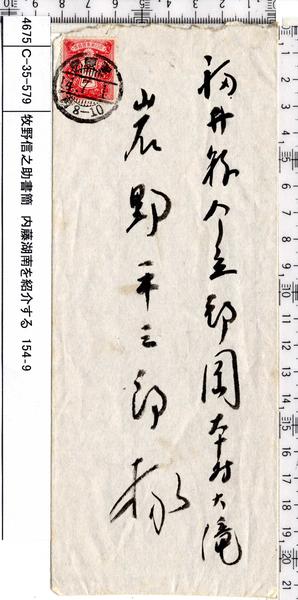 4675 C-35-579 牧野信之助書簡 内藤湖南を紹介する 154-9
福井縣今立郡岡本村大滝
岩野平三郎様
8-10